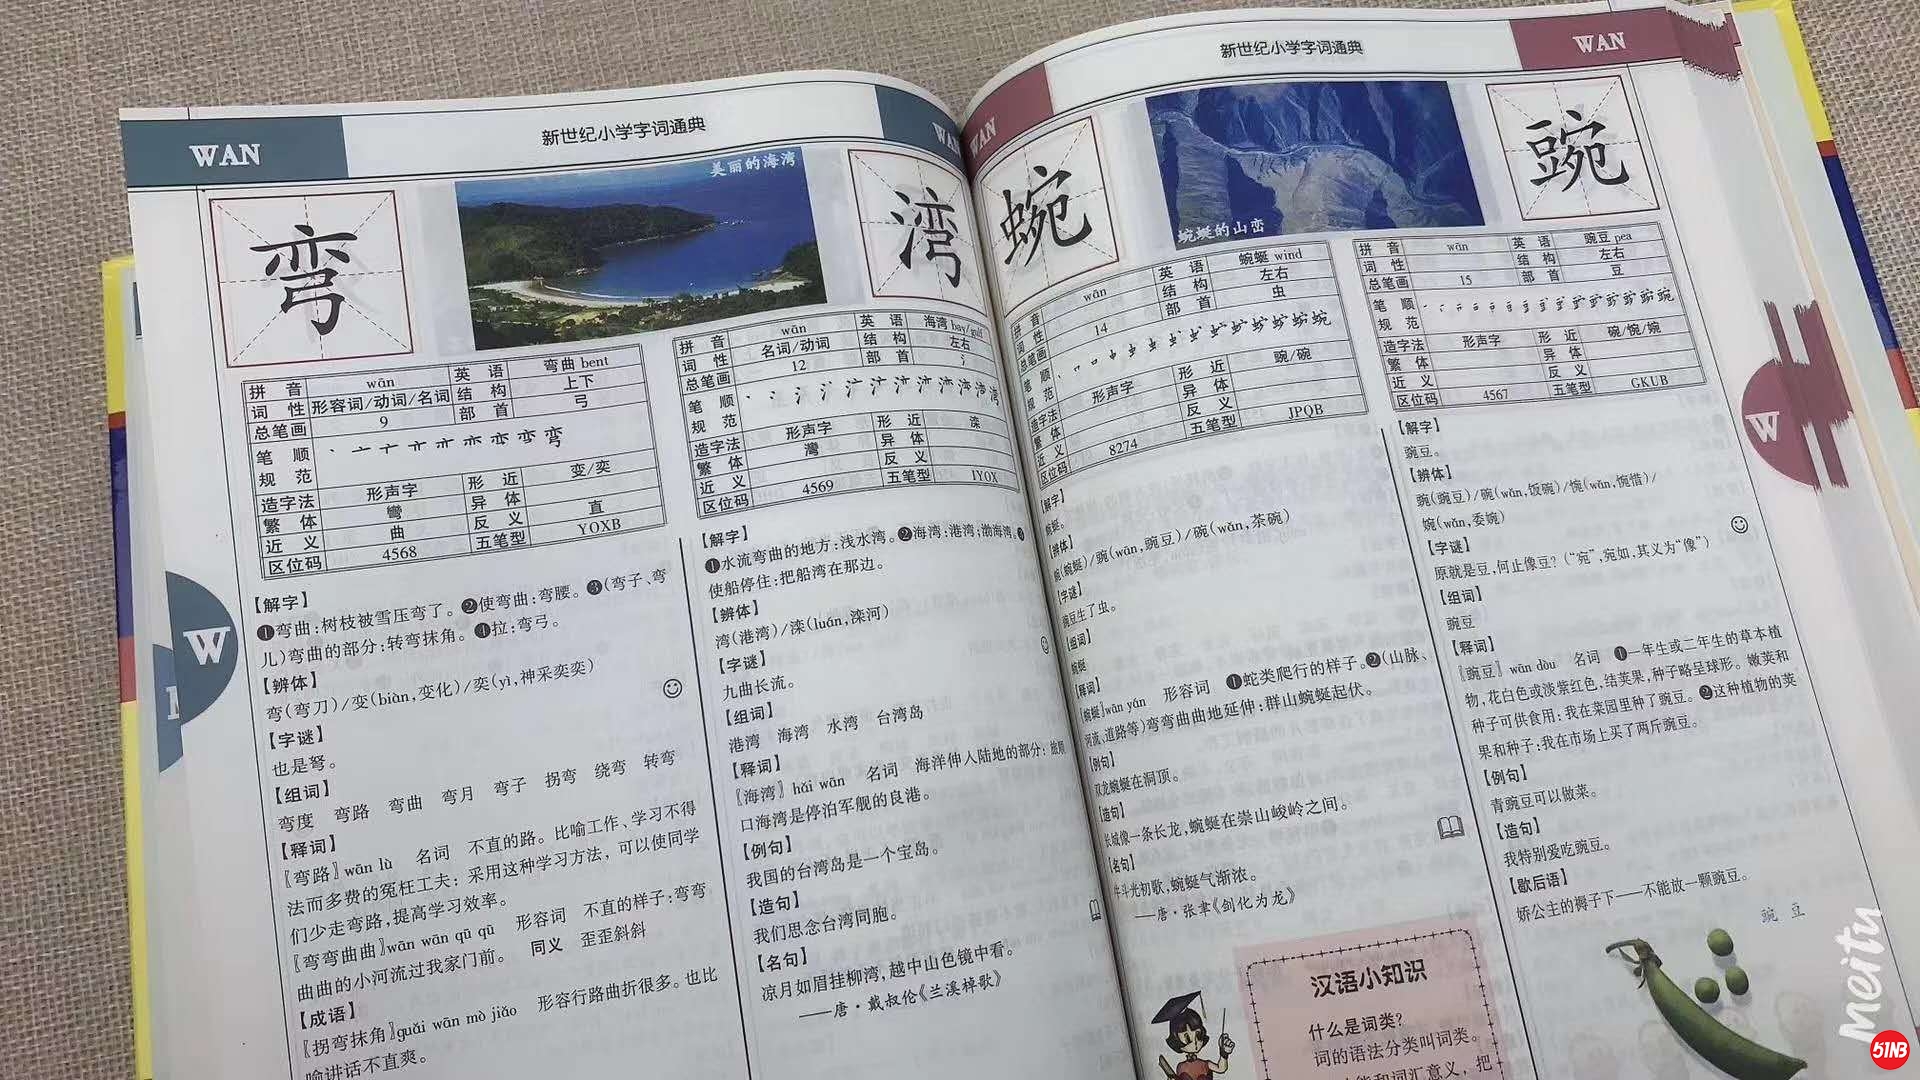 新世纪小学字词通典
WAN
WAN
弯
美丽的海湾
拼音 wān 英语 弯曲 bent
词性 形容词/动词/名词 结构 上下
总笔画 9 部首 弓
笔顺规范
造字法 形声字 形近 变/奕
繁体 彎 异体
近义 曲 反义 直
区位码 4568 五笔型 YOXB
【解字】
❶弯曲:树枝被雪压弯了。❷使弯曲:弯腰。❸(弯子、弯
儿)弯曲的部分:转弯抹角。❹拉:弯弓。
【辨体】
弯(弯刀)/变(biàn,变化)/奕(yì,神采奕奕)
【字谜】
也是弩。
【组词】
弯度 弯路 弯曲 弯月 弯子 拐弯 绕弯 转弯
【释词】
〖弯路〗wān lù 名词 不直的路。比喻工作、学习不得
法而多费的冤枉工夫:采用这种学习方法,可以使同学
们少走弯路,提高学习效率。
〖弯弯曲曲〗wān wān qū qū 形容词 不直的样子:弯弯
曲曲的小河流过我家门前。 同义 歪歪斜斜
【成语】
〖拐弯抹角〗guǎi wān mò jiǎo 形容行路曲折很多。也比
喻讲话不直爽。
W
湾
拼音 wān 英语 海湾 bay/gulf
词性 名词/动词 结构 左右
总笔画 12 部首 氵
笔顺规范
造字法 形声字 形近 滦
繁体 灣 异体
近义 反义
区位码 4569 五笔型 IYOX
【解字】
❶水流弯曲的地方:浅水湾。❷海湾:港湾;渤海湾。❸
使船停住:把船湾在那边。
【辨体】
湾(港湾)/滦(luán,滦河)
【字谜】
九曲长流。
【组词】
港湾 海湾 水湾 台湾岛
【释词】
〖海湾〗hǎi wān 名词 海洋伸入陆地的部分:旅顺
口海湾是停泊军舰的良港。
【例句】
我国的台湾岛是一个宝岛。
【造句】
我们思念台湾同胞。
【名句】
凉月如眉挂柳湾,越中山色镜中看。
——唐·戴叔伦《兰溪棹歌》
WAN
新世纪小学字词通典
WAN
蜿
蜿蜒的山峦
拼音 wān 英语 蜿蜒 wind
词性 结构 左右
总笔画 14 部首 虫
笔顺规范
造字法 形声字 形近 豌/碗
繁体 异体
近义 反义
区位码 8274 五笔型 JPQB
【解字】
蜿蜒。
【辨体】
蜿(蜿蜒)/豌(wān,豌豆)/碗(wǎn,茶碗)
【字谜】
豌豆生了虫。
【组词】
蜿蜒
【释词】
〖蜿蜒〗wān yán 形容词 ❶蛇类爬行的样子。❷(山脉、
河流、道路等)弯弯曲曲地延伸:群山蜿蜒起伏。
【例句】
双龙蜿蜒在洞顶。
【造句】
长城像一条长龙,蜿蜒在崇山峻岭之间。
【名句】
牛斗光初歇,蜿蜒气渐浓。
——唐·张聿《剑化为龙》
汉语小知识
什么是词类?
词的语法分类叫词类。
能和词汇意义,把
豌
拼音 wān 英语 豌豆 pea
词性 结构 左右
总笔画 15 部首 豆
笔顺规范
造字法 形声字 形近 碗/惋/婉
繁体 异体
近义 反义
区位码 4567 五笔型 GKUB
【解字】
豌豆。
【辨体】
豌(豌豆)/碗(wǎn,饭碗)/惋(wǎn,惋惜)/
婉(wǎn,委婉)
【字谜】
原就是豆,何止像豆?(“宛”,宛如,其义为“像”)
【组词】
豌豆
【释词】
〖豌豆〗wān dòu 名词 ❶一年生或二年生的草本植
物,花白色或淡紫红色,结荚果,种子略呈球形。嫩荚和
种子可供食用:我在菜园里种了豌豆。❷这种植物的荚
果和种子:我在市场上买了两斤豌豆。
【例句】
青豌豆可以做菜。
【造句】
我特别爱吃豌豆。
【歇后语】
娇公主的褥子下——不能放一颗豌豆。
豌豆
W
Meitu
51NB